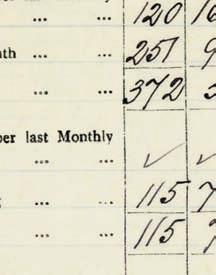 ... ... 120
nth ... ... 251
... ... 372
per last Monthly
... ... ✓ ✓
... ... 115 7
... ... 115